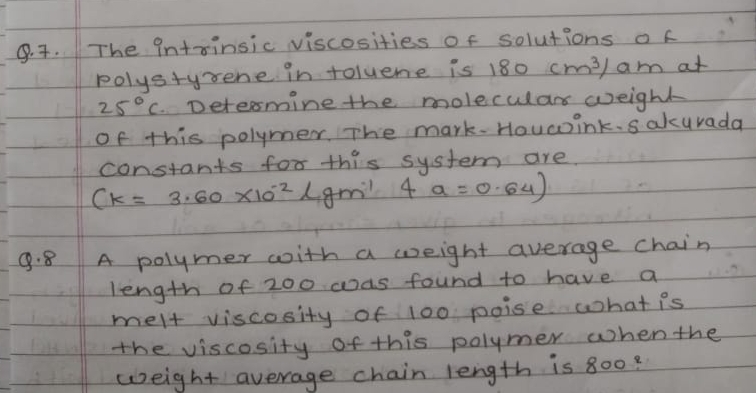 Q.7. The intrinsic viscosities of solutions of
polystyrene in toluene is 180 cm³/am at
25°C. Determine the molecular weight
of this polymer. The mark-Houwink-sakurada
constants for this system are.
(k = 3.60 x10⁻² lgm⁻¹ & a = 0.64)
Q.8 A polymer with a weight average chain
length of 200 was found to have a
melt viscosity of 100 poise. what is
the viscosity of this polymer when the
weight average chain length is 800?